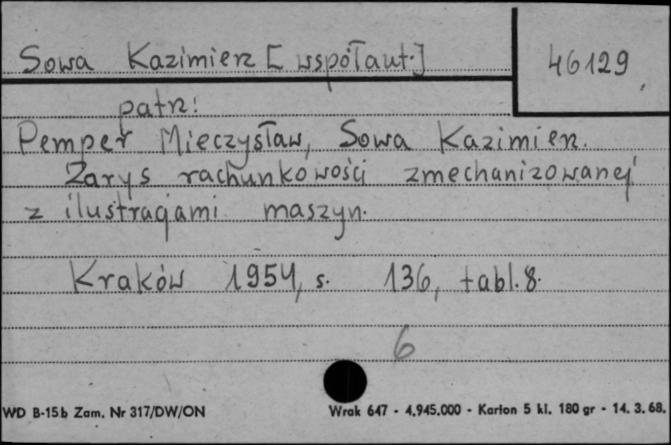 Sowa Kazimierz [współaut.]
46129
patrz:
Pemper Mieczysław, Sowa Kazimierz.
Zarys rachunkowości zmechanizowanej
z ilustracjami maszyn.
Kraków 1954, s. 136, tabl. 8.
6
WD B-15b Zam. Nr 317/DW/ON
Wrak 647 - 4.945.000 - Karton 5 kl. 180 gr - 14. 3. 68.